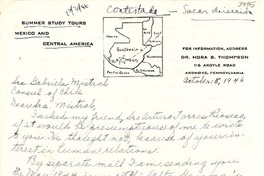 Contestada - Sacar dirección
SUMMER STUDY TOURS
MEXICO AND
CENTRAL AMERICA
FOR INFORMATION, ADDRESS
DR. NORA B. THOMPSON
115 ARGYLE ROAD
ARDMORE, PENNSYLVANIA
October 8, 1946
Sra Gabriela Mistral
Consul of Chile
Dear Sra. Mistral,
I asked my friend, Dr. Arturo Torres Rioseco,
if it would be presumptuous of me to write
to you. He thought not because of your in-
terest in human relations.
By separate mail I am sending you
the May 1944